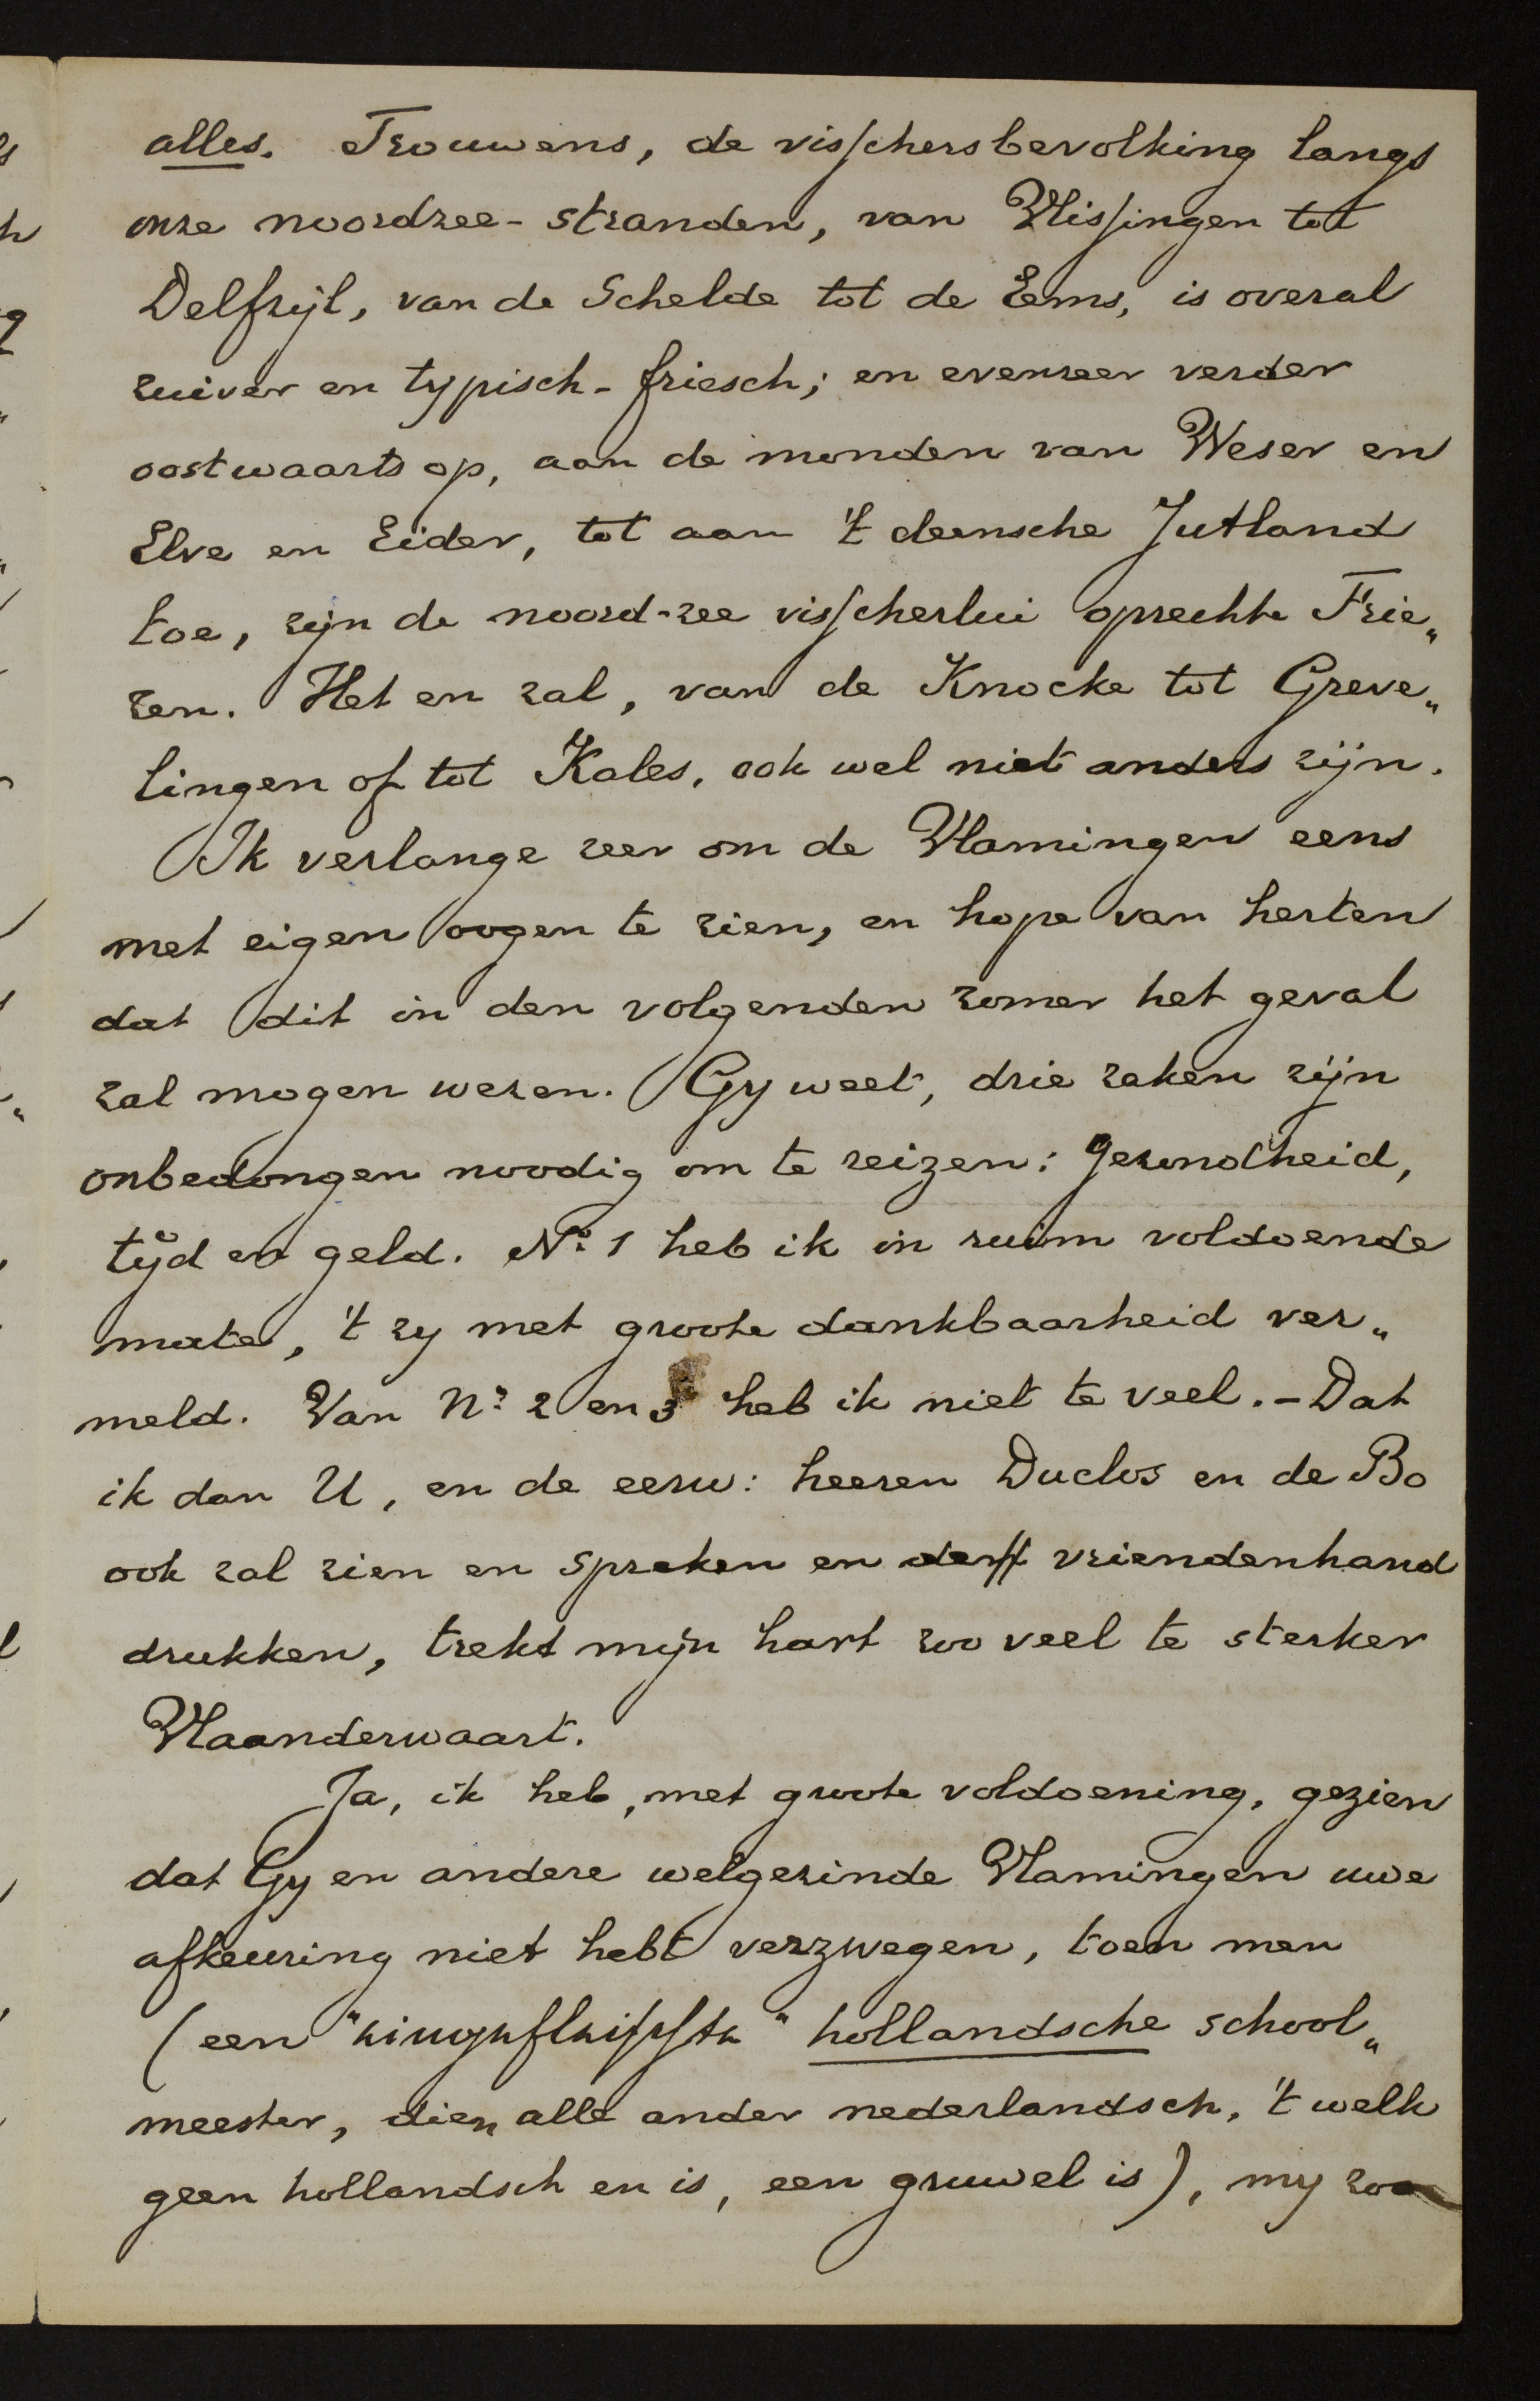 alles. Trouwens, de visschersbevolking langs
onze noordzee-stranden, van Vlissingen tot
Delfzijl, van de Schelde tot de Eems, is overal
zuiver en typisch-friesch; en evenzeer verder
oostwaarts op, aan de monden van Weser en
Elve en Eider, tot aan 't deensche Jutland
toe, zijn de noord-zee visscherlui oprechte Frie„
zen. Het en zal, van de Knocke tot Greve„
lingen of tot Kales, ook wel niet anders zijn.
Ik verlange zeer om de Vlamingen eens
met eigen oogen te zien, en hope van herten
dat dit in den volgenden zomer het geval
zal mogen wezen. Gy weet, drie zaken zijn
onbedongen noodig om te reizen: gezondheid,
tijd en geld. No. 1 heb ik in ruim voldoende
mate, 't zy met groote dankbaarheid ver„
meld. Van No. 2 en 3 heb ik niet te veel. - Dat
ik dan U, en de eerw: heeren Duclos en de Bo
ook zal zien en spreken en de vriendenhand
drukken, trekt mijn hart zoo veel te sterker
Vlaanderwaart.
Ja, ik heb, met groote voldoening, gezien
dat Gy en andere welgezinde Vlamingen uwe
afkeuring niet hebt verzwegen, toen men
(een "eingefleischte" hollandsche school„
meester, dien alle ander nederlandsch, 't welk
geen hollandsch en is, een gruwel is), my zoo